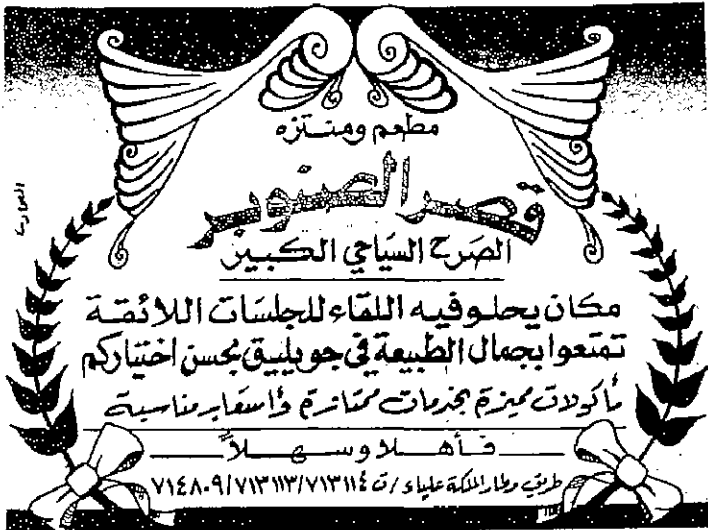 مطعم ومنتزه
قصر الصنوبر
الصرح السياحي الكبير
مكان يحلو فيه اللقاء للجلسات اللائقة
تمتعوا بجمال الطبيعة في جو يليق بحسن اختياركم
مأكولات مميزة بخدمات ممتازة وأسعار مناسبة
فأهلا وسهلاً
طريق مطار الملكة علياء / ت ٧١٣١١٤/٧١٣١١٣/٧١٤٨٠٩